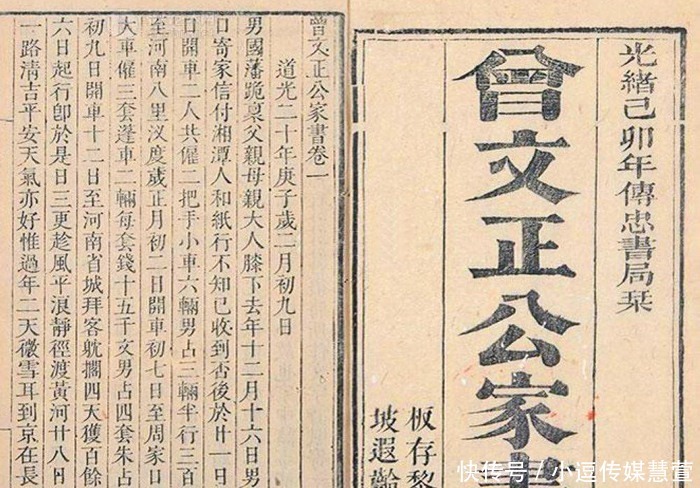 光緒己卯年傳忠書局栞
曾文正公家
板存黎
坡遐齡
曾文正公家書卷一
道光二十年庚子歲二月初九日
男國藩跪稟父親母親大人膝下去年十二月十六日男
口寄家信付湘潭人和紙行不知已收到否後於廿一日
口開車二人共僱二把手小車六輛男占三輛半行三百
至河南八里汊度歲正月初二日開車初七日至周家口
大車僱三套篷車二輛每套錢十五千文男占四套朱占
初九日開車十二日至河南省城拜客躭擱四天獲百餘
六日起行卽於是日三更趁風平浪靜徑渡黃河廿八日
一路清吉平安天氣亦好惟過年二天微雪耳到京在長
快传号 / 小逗传媒慧萱